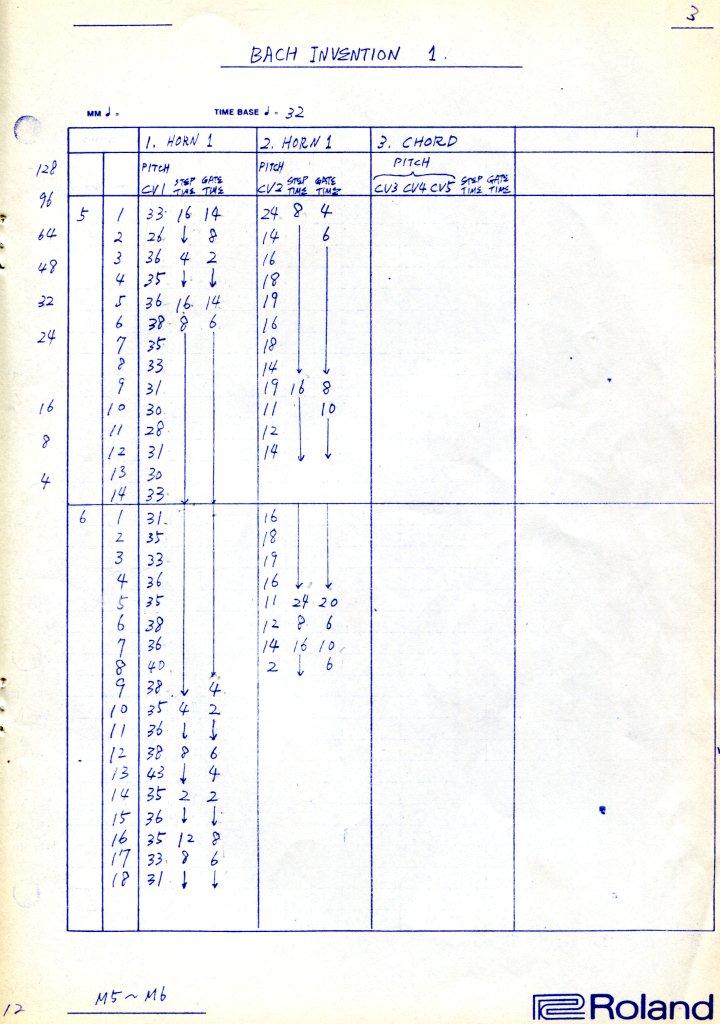 3
BACH INVENTION 1.
MM ♩ = TIME BASE ♩ = 32
1. HORN 1 2. HORN 1 3. CHORD
PITCH PITCH PITCH
CV1 STEP TIME GATE TIME CV2 STEP TIME GATE TIME CV3 CV4 CV5 STEP TIME GATE TIME
128
96
64
48
32
24
16
8
4
5 1 33 16 14 24 8 4
2 26 ↓ 8 14 6
3 36 4 2 16
4 35 ↓ ↓ 18
5 36 16 14 19
6 38 8 6 16
7 35 18
8 33 14
9 31 19 16 8
10 30 11 10
11 28 12
12 31 14
13 30
14 33
6 1 31 16
2 35 18
3 33 19
4 36 16
5 35 11 24 20
6 38 12 8 6
7 36 14 16 10
8 40 2 ↓ 6
9 38 4
10 35 4 2
11 36 ↓ ↓
12 38 8 6
13 43 ↓ 4
14 35 2 2
15 36 ↓ ↓
16 35 12 8
17 33 8 6
18 31 ↓ ↓
M5~M6
12
Roland